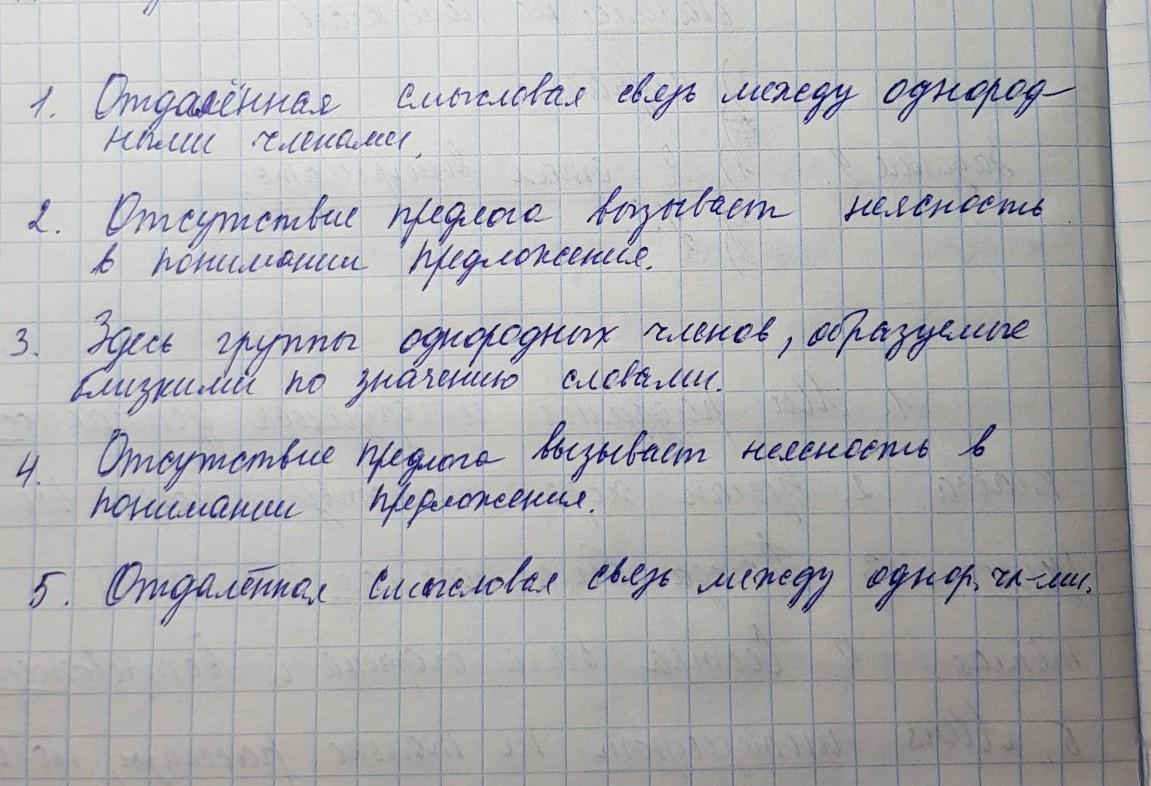 1. Отдалённая смысловая связь между однород
ными членами.
2. Отсутствие предлога вызывает неясность
в понимании предложения.
3. Здесь группы однородных членов, образуемые
близкими по значению словами.
4. Отсутствие предлога вызывает неясность в
понимании предложения.
5. Отдалённая смысловая связь между однор. чл-ми.